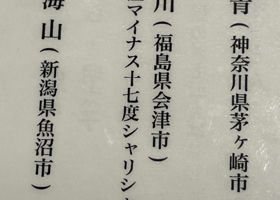 青(神奈川県茅ヶ崎市
川(福島県会津市)
マイナス十七度シャリシ
海山(新潟県魚沼市)